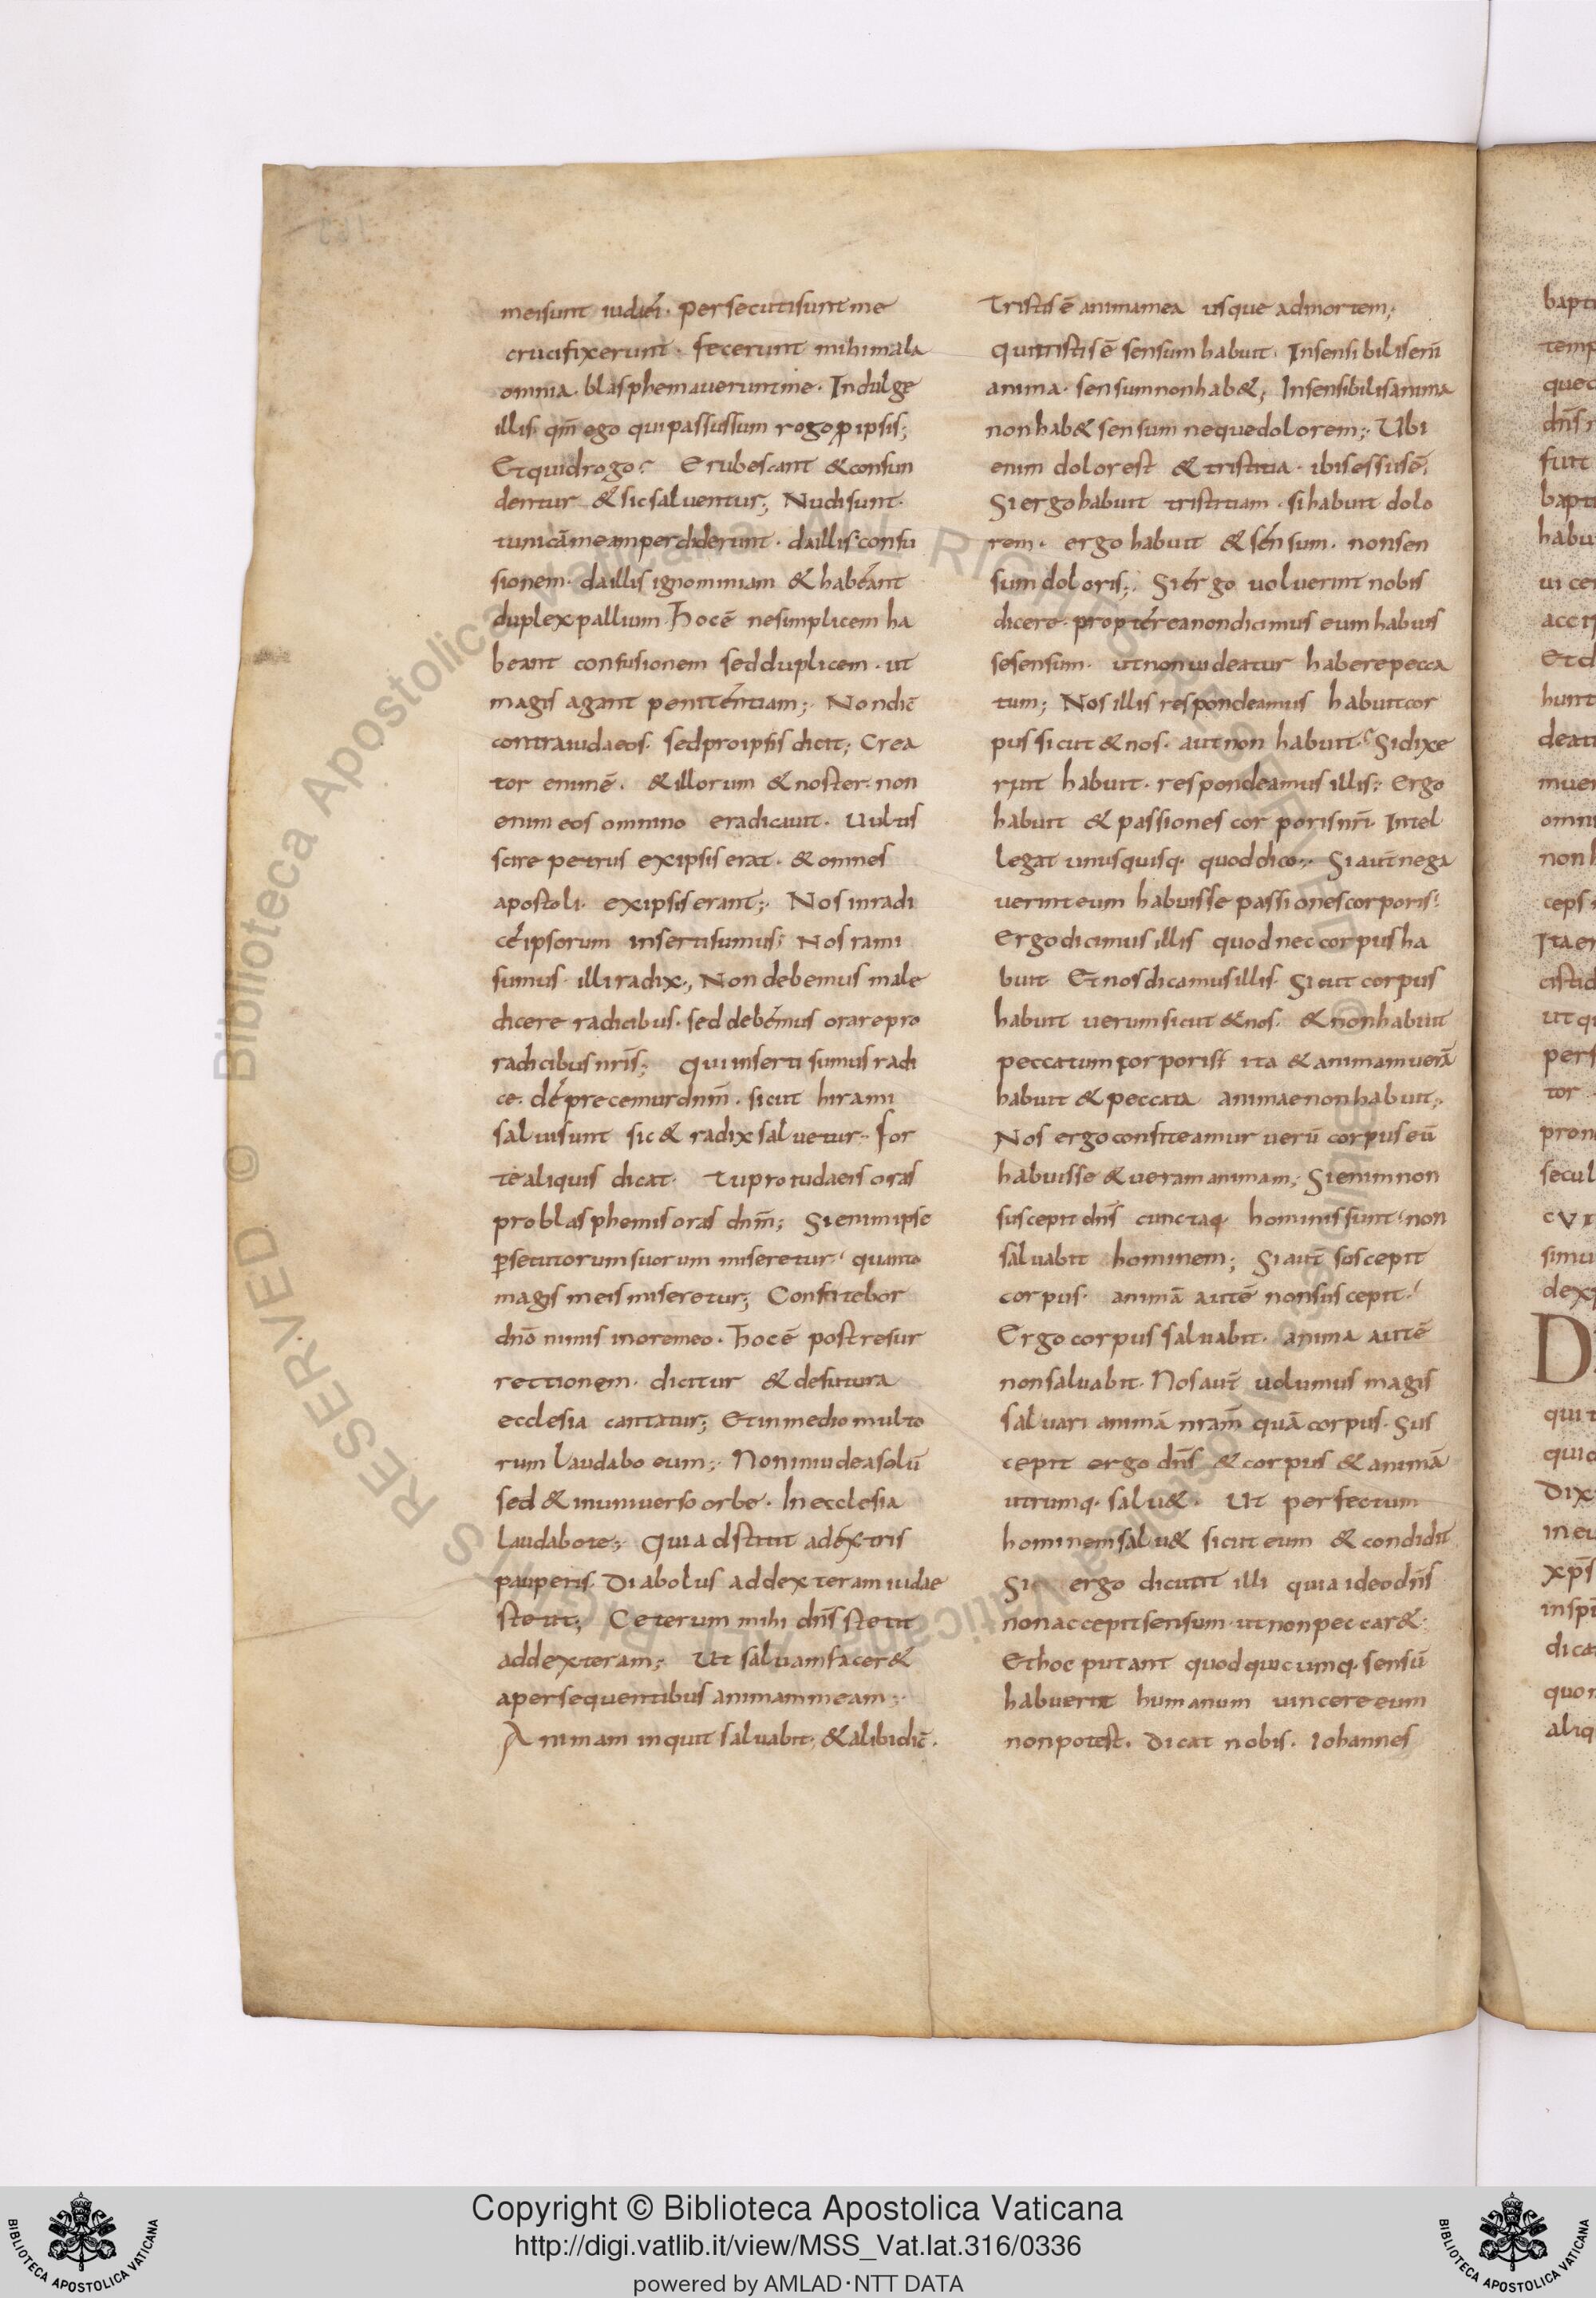 meisunt iudęi. persecutisunt me
crucifixerunt. fecerunt mihimala
omnia. blasphemaueruntme. Indulge
illis qm̄ ego quipassussum rogo ꝑipsis;
Etquidrogo? Erubescant &confun
dentur &sicsaluentur; Nudisunt.
tunicāmeamperdiderunt. daillisconfu
sionem. daillisignominiam &habeant
duplexpallium. Hocē nesimplicem ha
beant confusionem sedduplicem. ut
magis agant penitentiam; Nondic̄
contraiudaeos. sedproipsis dicit; Crea
tor enimē. &illorum &noster. non
enim eos omnino eradicauit. Uultis
scire petrus exipsis erat. &omnes
apostoli. exipsis erant; Nos inradi
ce ipsorum insertisumus; Nos rami
sumus illiradix; Non debemus male
dicere radicibus. sed debemus orarepro
radicibus nrīs; Qui inserti sumus radi
ce. deprecemurdnm̄. sicut hirami
saluisunt sic& radix saluetur. For
te aliquis dicat. Tuproiudaeis oras
problasphemis oras dnm̄; Sienimipse
ꝑsecutorumsuorum miseretur quanto
magis meis miseretur; Confitebor
dnō nimis inoremeo. Hocē postresur
rectionem. dicitur &defutura
ecclesia cantatur; Etinmedio multo
rum laudabo eum; Noniniudeasolū
sed &inuniuerso orbe. Inecclesia
laudabote; Quia dstitit adextris
pauperis. Diabolus addexteram iudae
stetit; Ceterum mihi dn̄s stetit
addexteram; Ut saluamfacer&
apersequentibus animammeam;
Animam inquit saluabit; &alibidic̄.
Tristisē animamea usque admortem;
Quitristisē sensumhabuit. Insensibilisenī
anima. sensumnonhab&; Insensibilisanima
nonhab& sensum nequedolorem; Ubi
enim dolorest &tristitia. ibisessusē;
Siergohabuit tristitiam. sihabuit dolo
rem. ergo habuit &sensum. nonsen
sum doloris; Siergo uoluerint nobis
dicere. propterea nondicimus eumhabuis
sesensum. utnonuideatur haberepecca
tum; Nos illis respondeamus habuitcor
pus sicut &nos. autnon habuit? Sidixe
rint habuit. respondeamus illis; Ergo
habuit &passiones corporis nr̄i. Intel
legat unusquisq. quoddico; Si aut̄nega
uerinteum habuisse passionescorporis;
Ergodicimus illis quod neccorpusha
buit Etnosdicamusillis. Sicut corpus
habuit uerumsicut &nos. &nonhabuit
peccatumcorporis; ita &animamuerā
habuit &peccata animaenonhabuit;
Nos ergoconfiteamur uerū corpuseū
habuisse &ueramanimam; Sienimnon
suscepit dn̄s cunctaq. hominissunt non
saluabit hominem; Si aut̄ suscepit
corpus. animā autē nonsuscepit.
Ergo corpussaluabit. anima autē
nonsaluabit. Nosaut̄ uolumus magis
saluari animā nram̄ quācorpus. Sus
cepit ergo dn̄s &corpus &animā
utrumq. salu&. Ut perfectum
hominemsalu& sicut eum &condidit
Si ergo dicunt illi quiaideodn̄s
nonaccepitsensum. utnonpeccar&;
Ethoc putant quodquicumq. sensū
habuerit humanum uincere eum
nonpotest. Dicat nobis. Iohannes
Copyright © Biblioteca Apostolica Vaticana
http://digi.vatlib.it/view/MSS_Vat.lat.316/0336
powered by AMLAD·NTT DATA
BIBLIOTECA APOSTOLICA VATICANA
BIBLIOTECA APOSTOLICA VATICANA